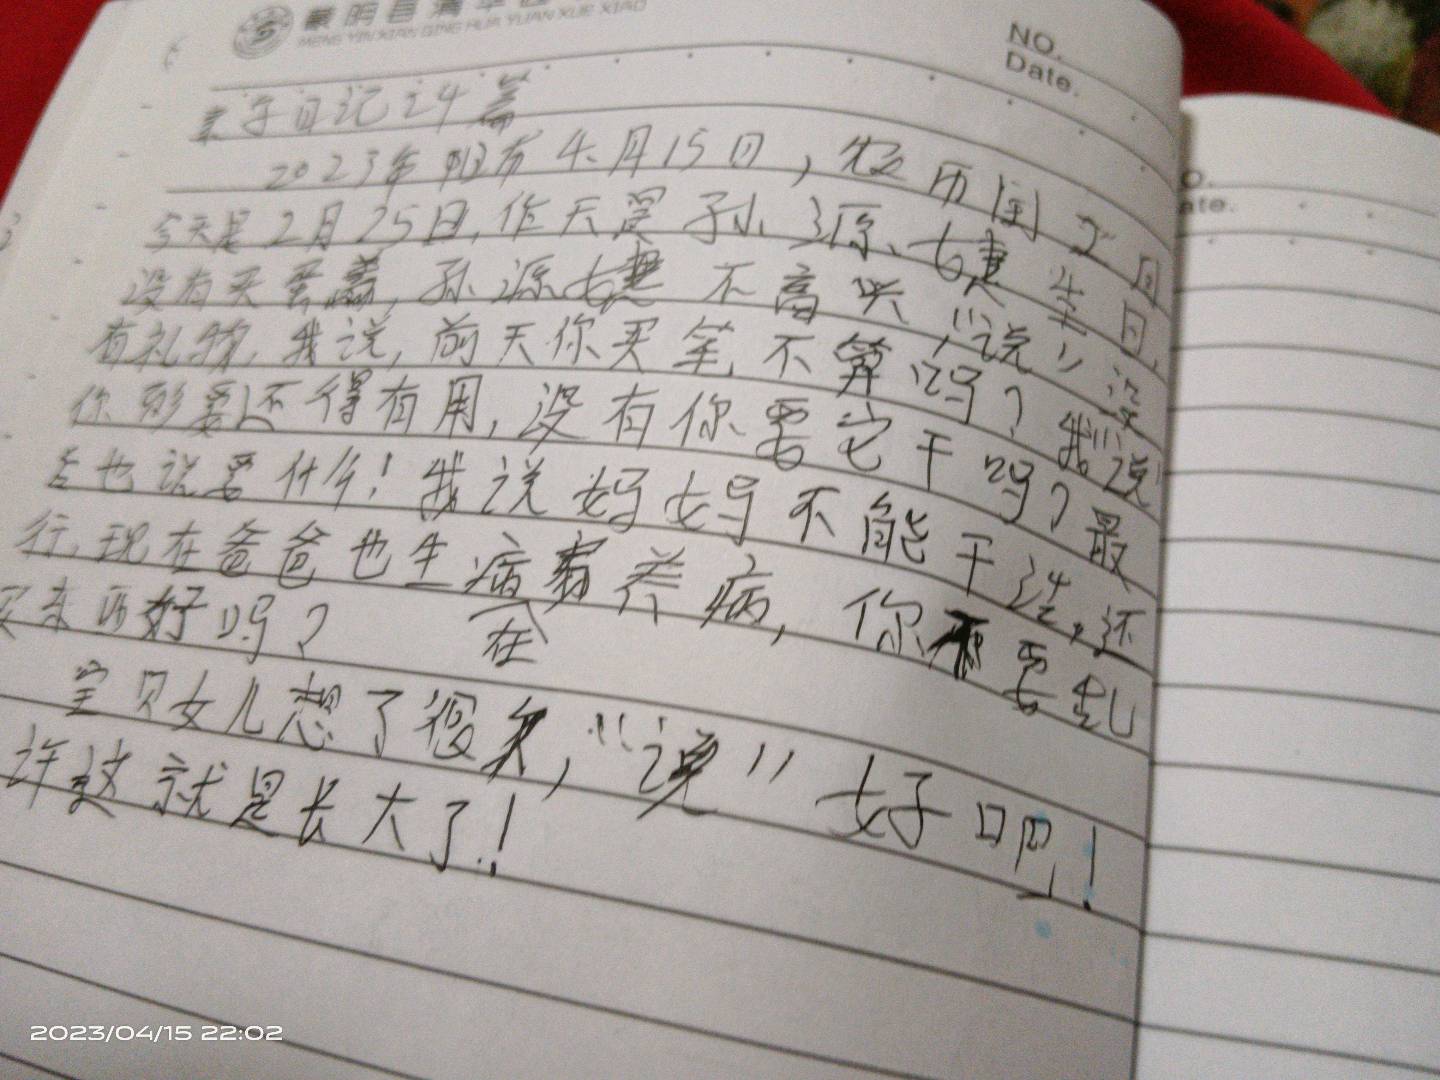 MENG YIN XIAN QING HUA YUAN XUE XIAO
NO.
Date.
亲子日记24篇
2023年 4月15日，农历闰2月
今天是2月25日，昨天是孙源 4日，
没有买 ，孙源 不高兴，“说”没
有礼物，我说，前天你买笔不算吗？我“说
你 要还得有用，没有你要它干吗？最
去也说要什么！我说妈妈不能干活，还
行，现在爸爸也生病在养病，你不要乱
买东西好吗？
宝贝女儿想了很久，“说”好吧！
许这就是长大了！
2023/04/15 22:02